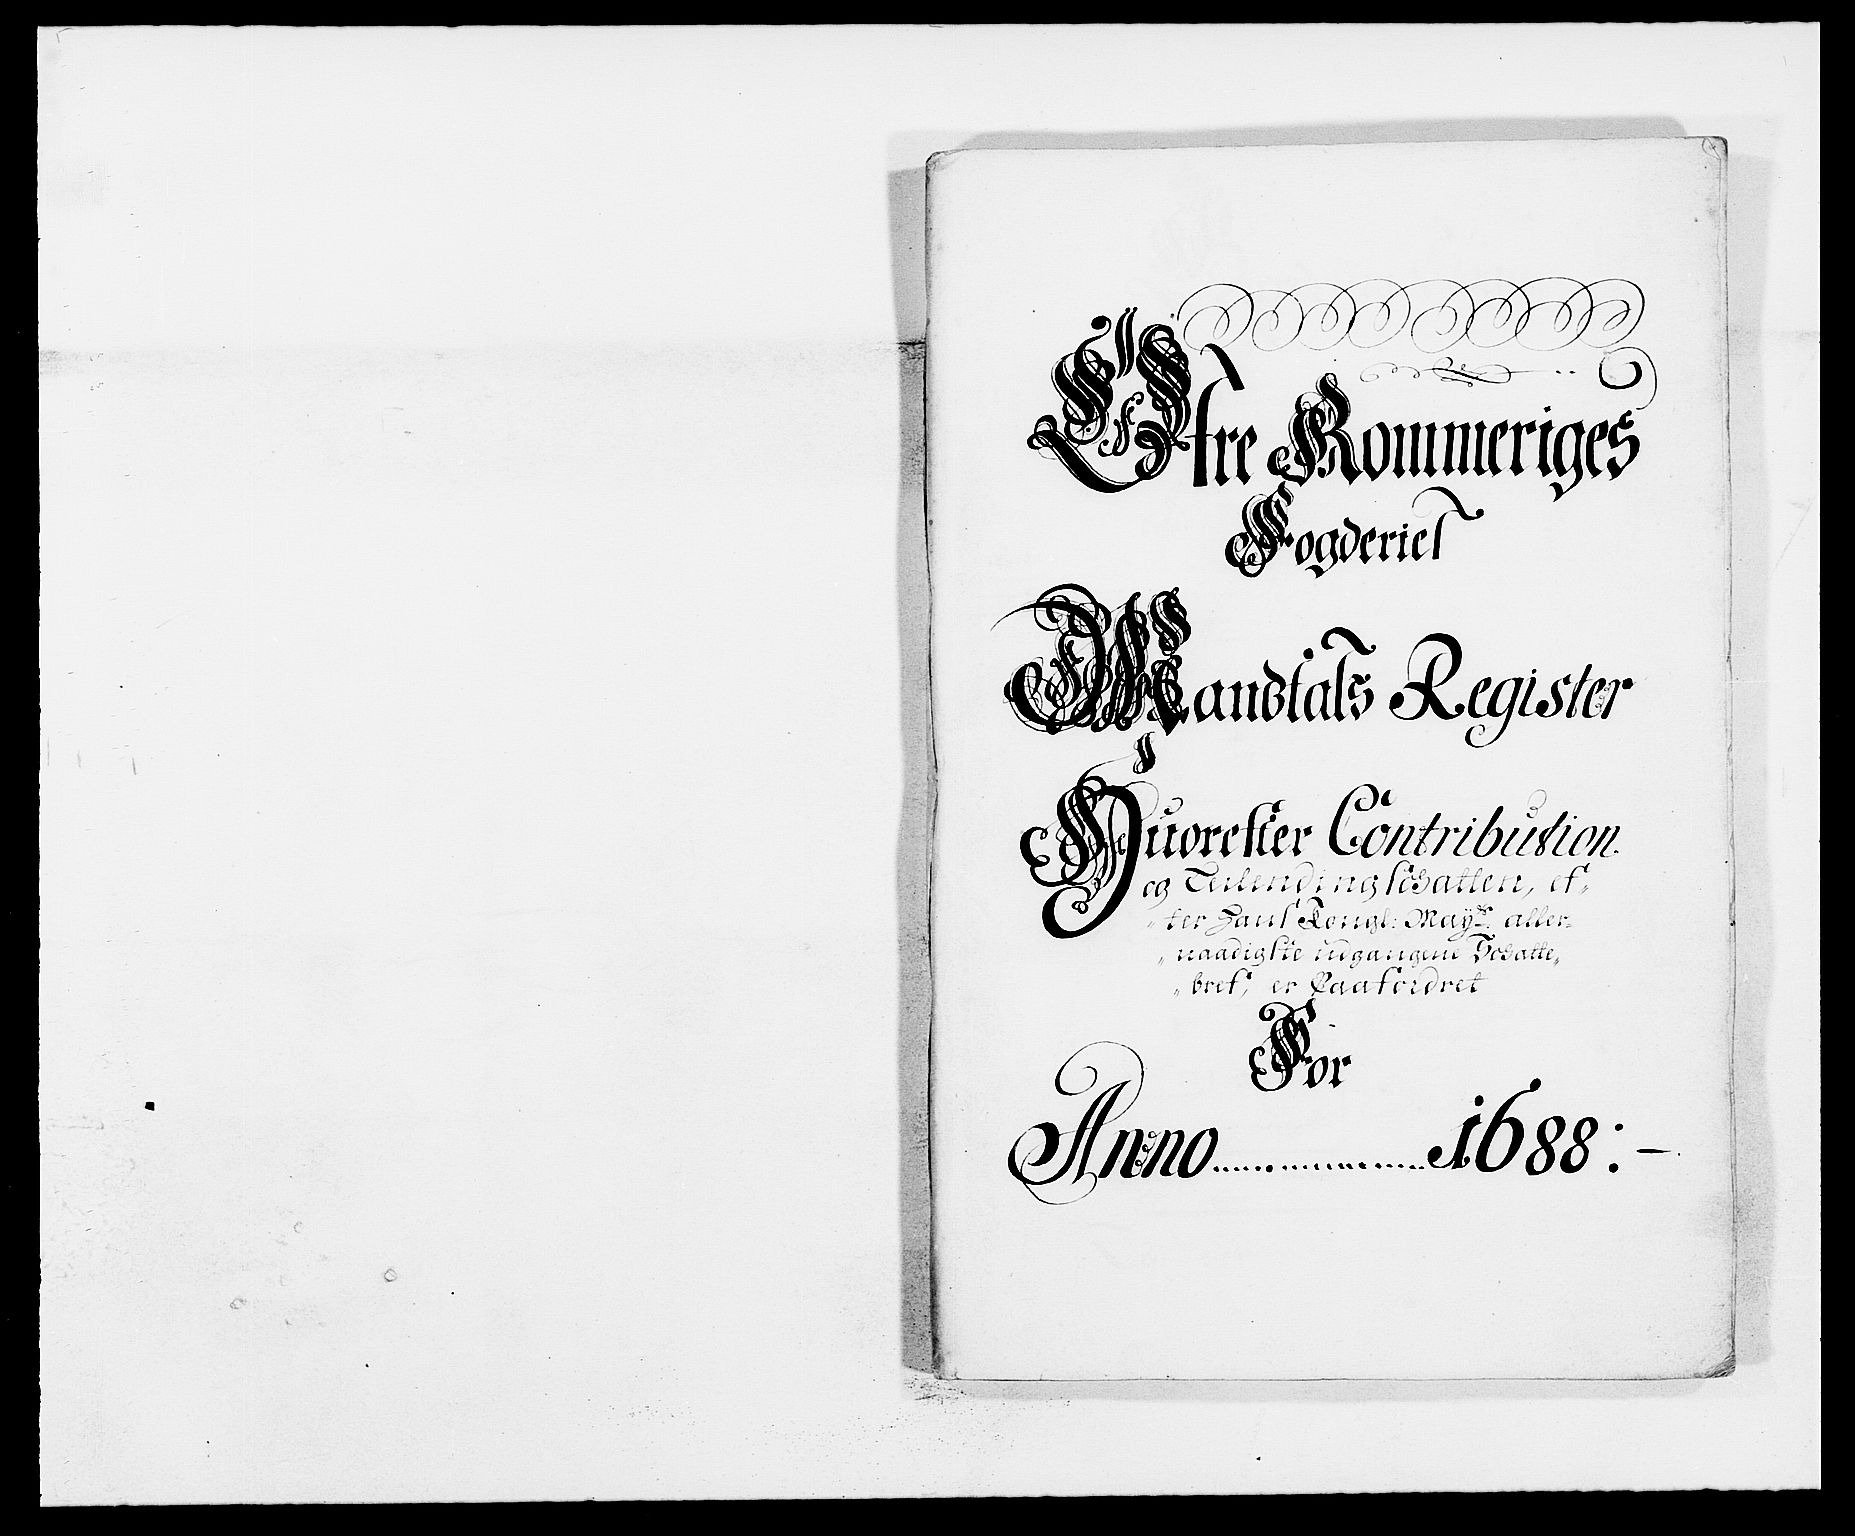 Øfre Rommeriges
Fogderiet
Mandtals Register
Huorefter Contribution
og Teilending schatten, ef„
„ter Hans Kongl: Mayts: aller„
„naadigste udgangene Schatte„
„bref, er Paafordret
For
Anno.................1688:—